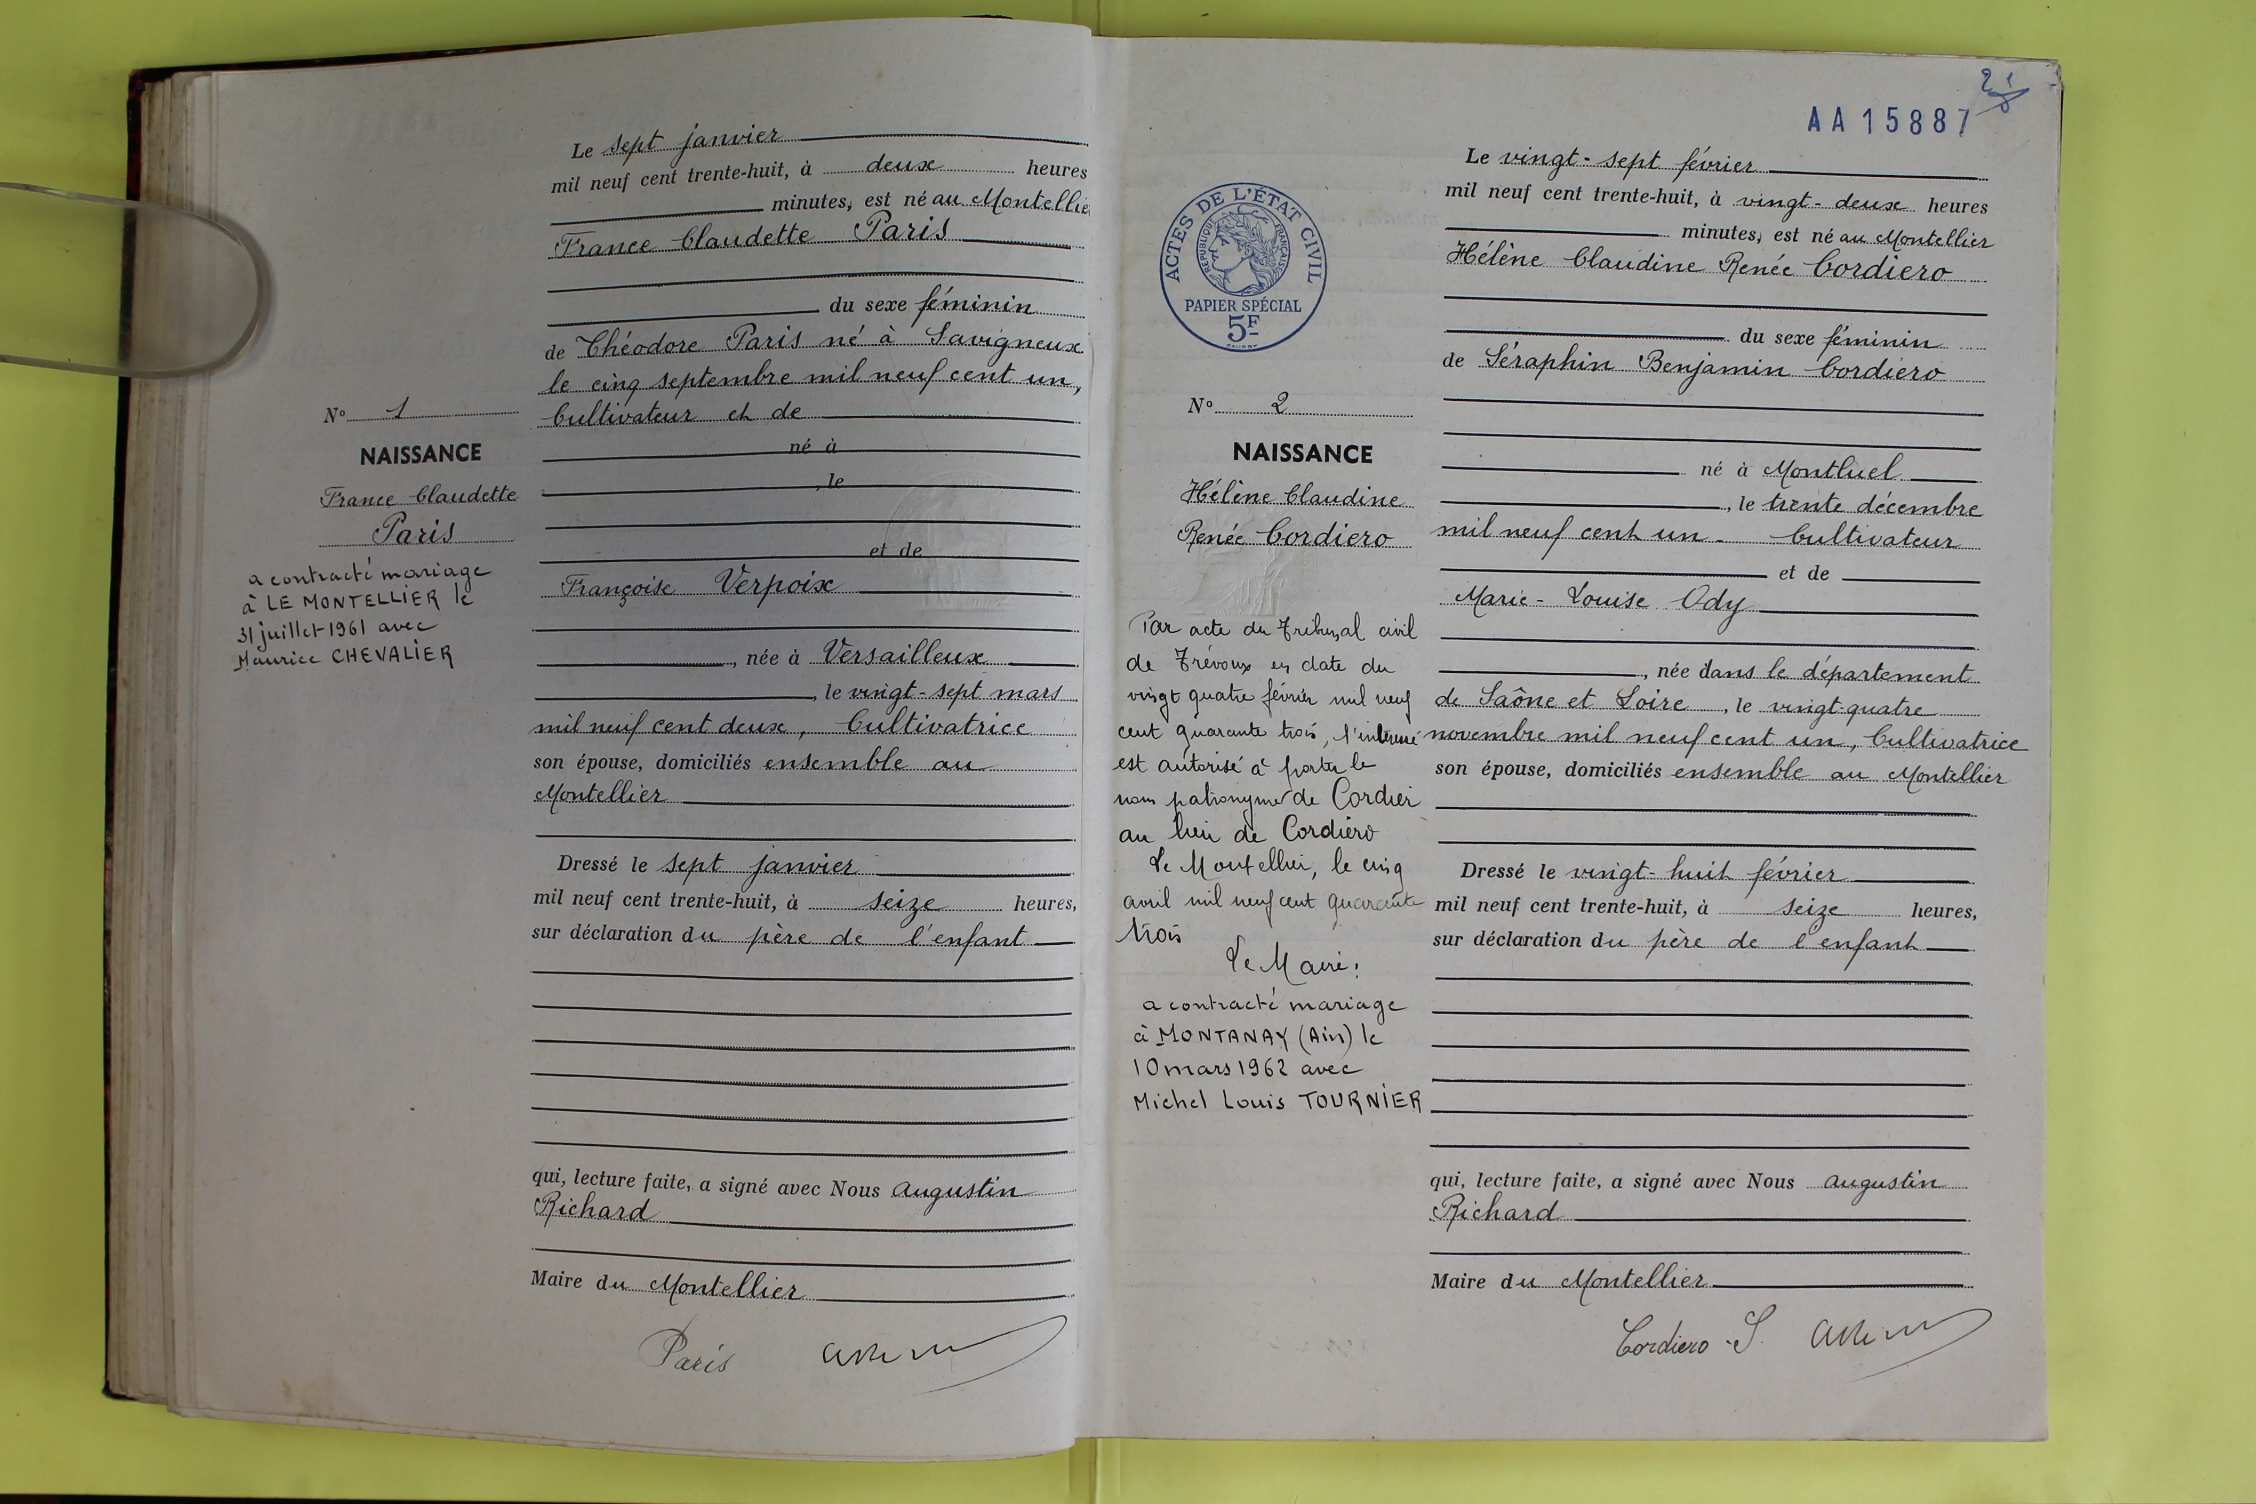 N° 1
NAISSANCE
France Claudette
Paris
a contracté mariage
à LE MONTELLIER le
31 juillet 1961 avec
Maurice CHEVALIER
Le sept janvier
mil neuf cent trente-huit, à deux heures
minutes, est né au Montellie
France Claudette Paris
du sexe féminin
de Théodore Paris né à Savigneux
le cinq septembre mil neuf cent un,
Cultivateur et de
né à
, le
et de
Françoise Verpoix
, née à Versailleux
, le vingt-sept mars
mil neuf cent deux, Cultivatrice
son épouse, domiciliés ensemble au
Montellier
Dressé le sept janvier
mil neuf cent trente-huit, à seize heures,
sur déclaration du père de l'enfant
qui, lecture faite, a signé avec Nous Augustin
Richard
Maire du Montellier
Paris
AA15887
ACTES DE L'ÉTAT CIVIL
RÉPUBLIQUE FRANÇAISE
PAPIER SPÉCIAL
5F
N° 2
NAISSANCE
Hélène Claudine
Renée Cordiero
Par acte du Tribunal civil
de Trévoux en date du
vingt quatre février mil neuf
cent quarante trois, l'intéressé
est autorisé à porter le
nom patronyme de Cordier
au lieu de Cordiéro
Le Montellier, le cinq
avril mil neuf cent quarante
trois
Le Maire:
a contracté mariage
à MONTANAY (Ain) le
10 mars 1962 avec
Michel Louis TOURNIER
Le vingt-sept février
mil neuf cent trente-huit, à vingt-deux heures
minutes, est né au Montellier
Hélène Claudine Renée Cordiero
du sexe féminin
de Séraphin Benjamin Cordiero
né à Montluel
, le trente décembre
mil neuf cent un - Cultivateur
et de
Marie-Louise Ody
, née dans le département
de Saône et Loire, le vingt-quatre
novembre mil neuf cent un, Cultivatrice
son épouse, domiciliés ensemble au Montellier
Dressé le vingt-huit février
mil neuf cent trente-huit, à seize heures,
sur déclaration du père de l'enfant
qui, lecture faite, a signé avec Nous Augustin
Richard
Maire du Montellier
Cordiero S.